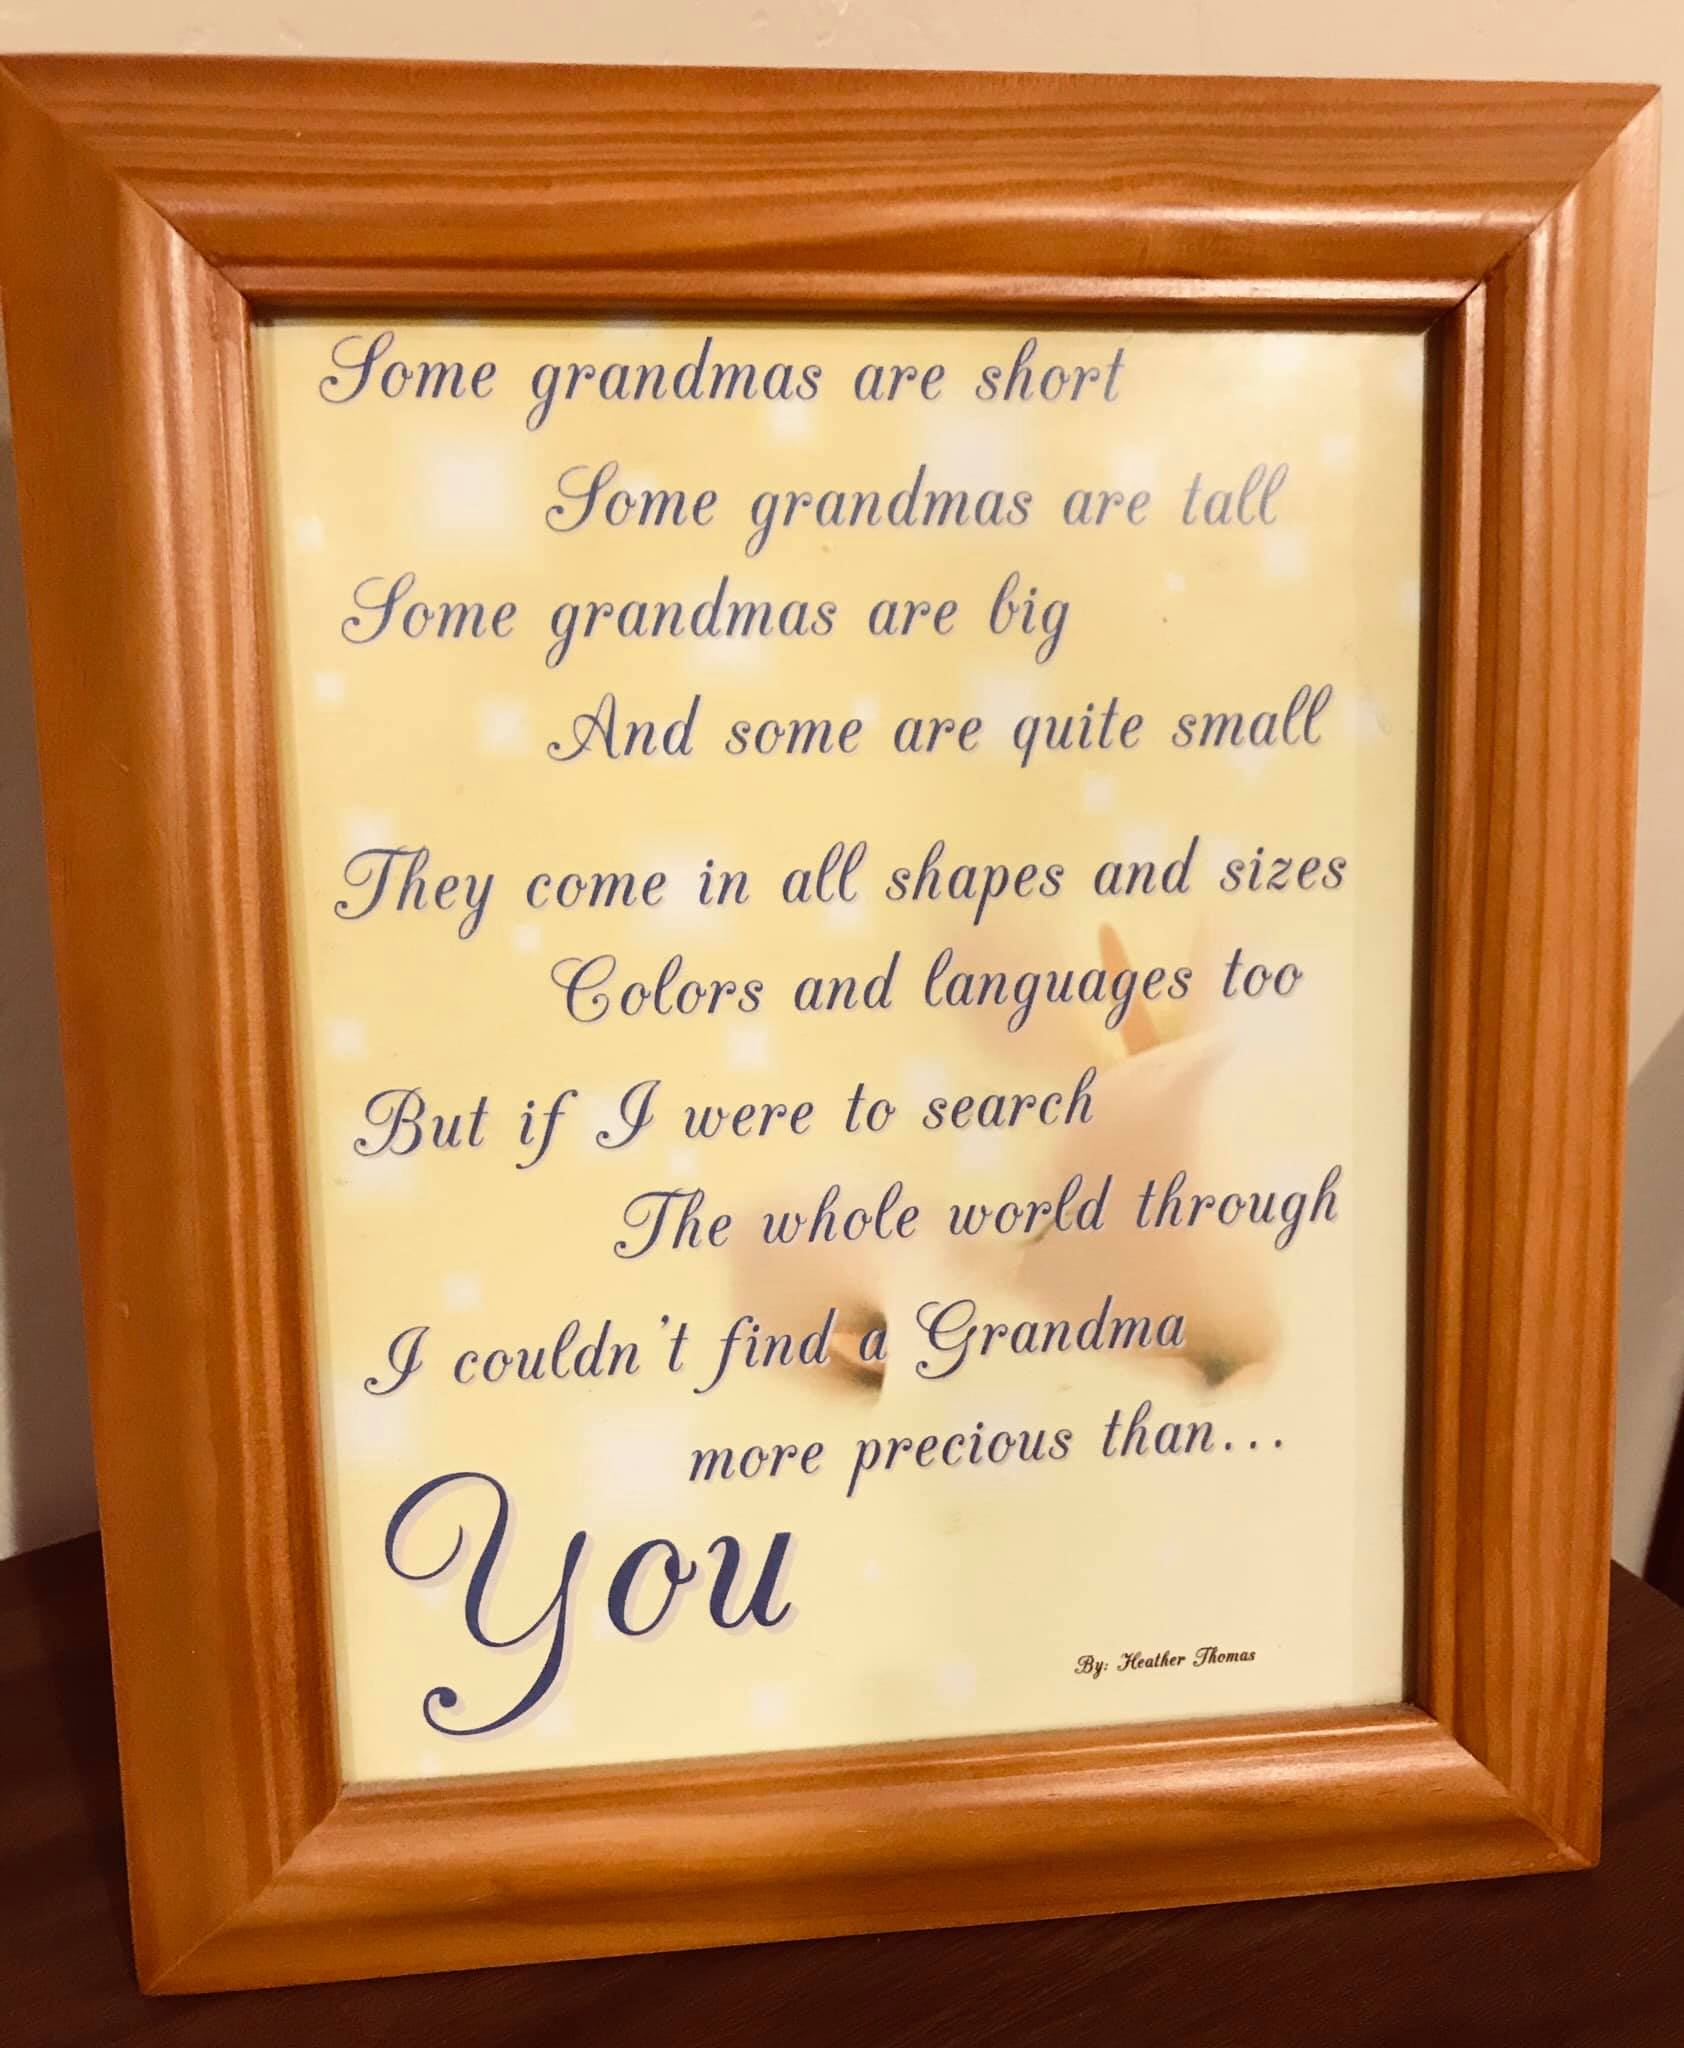 Some grandmas are short
Some grandmas are tall
Some grandmas are big
And some are quite small
They come in all shapes and sizes
Colors and languages too
But if I were to search
The whole world through
I couldn't find a Grandma
more precious than...
You
By: Heather Thomas